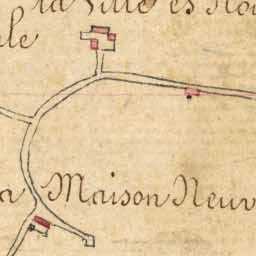 la Ville es No
le
a Maison Neuv